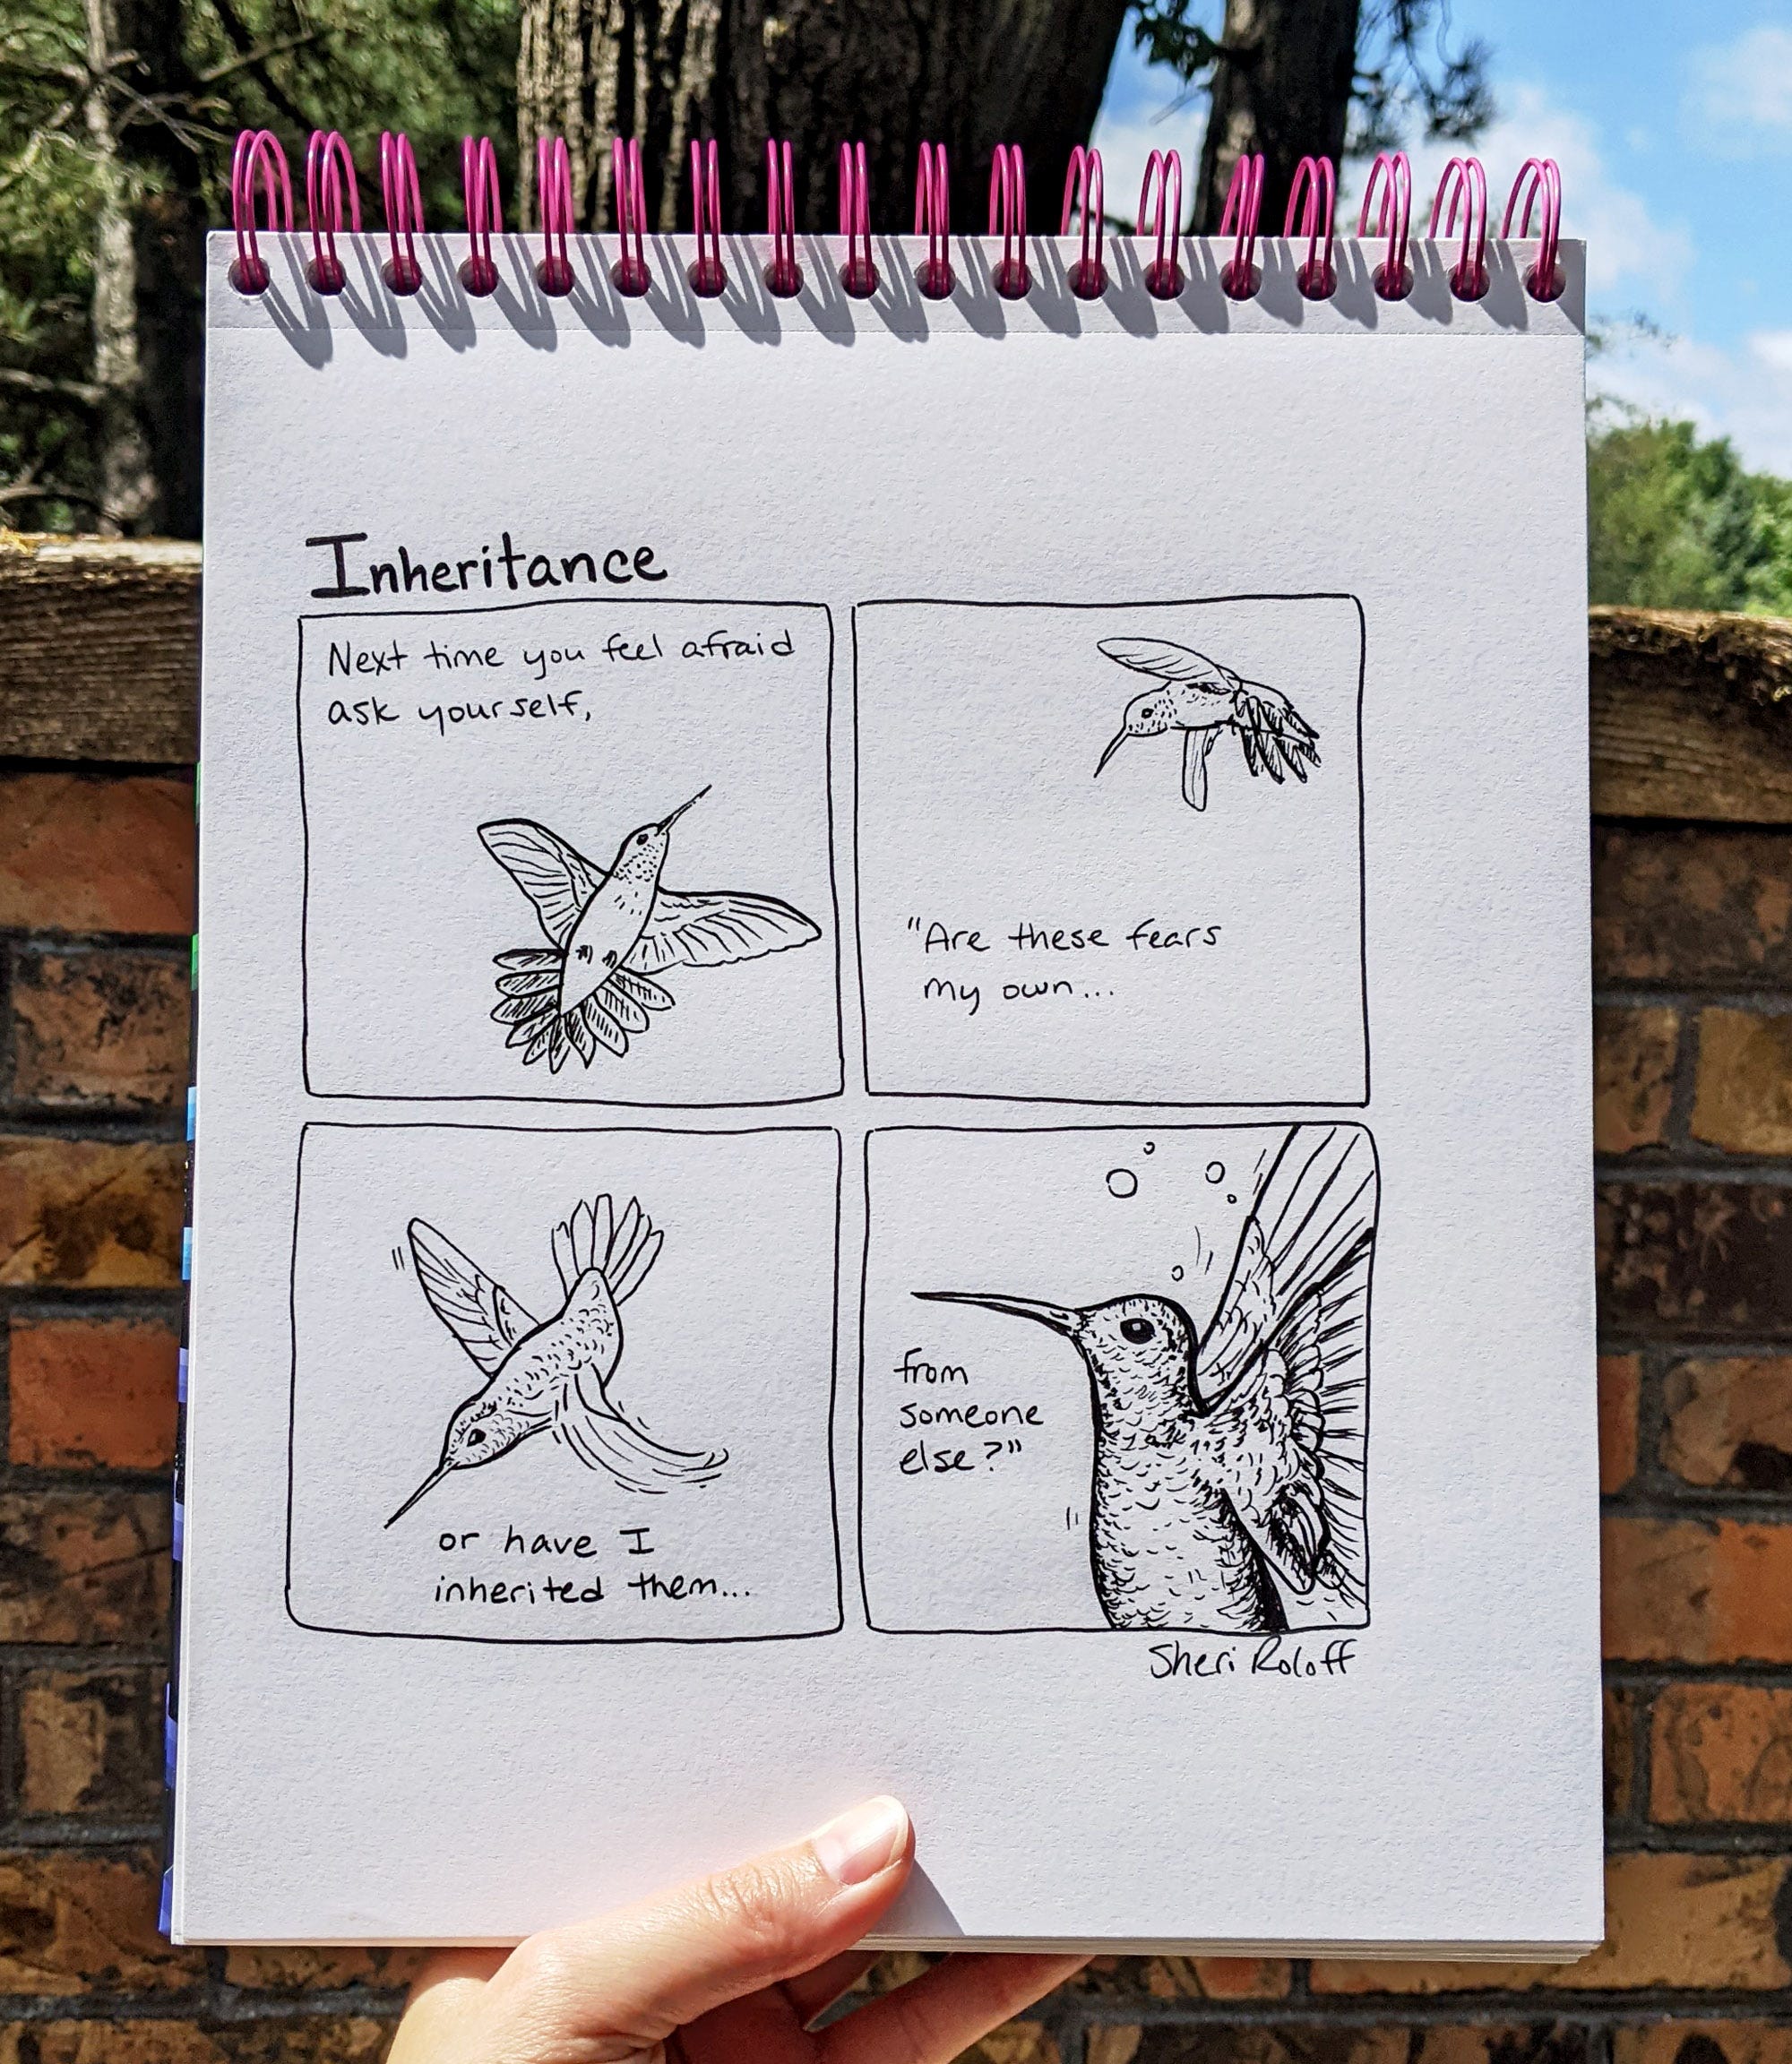 Inheritance
Next time you feel afraid
ask yourself,
"Are these fears
my own...
or have I
inherited them...
from
someone
else?"
Sheri Roloff